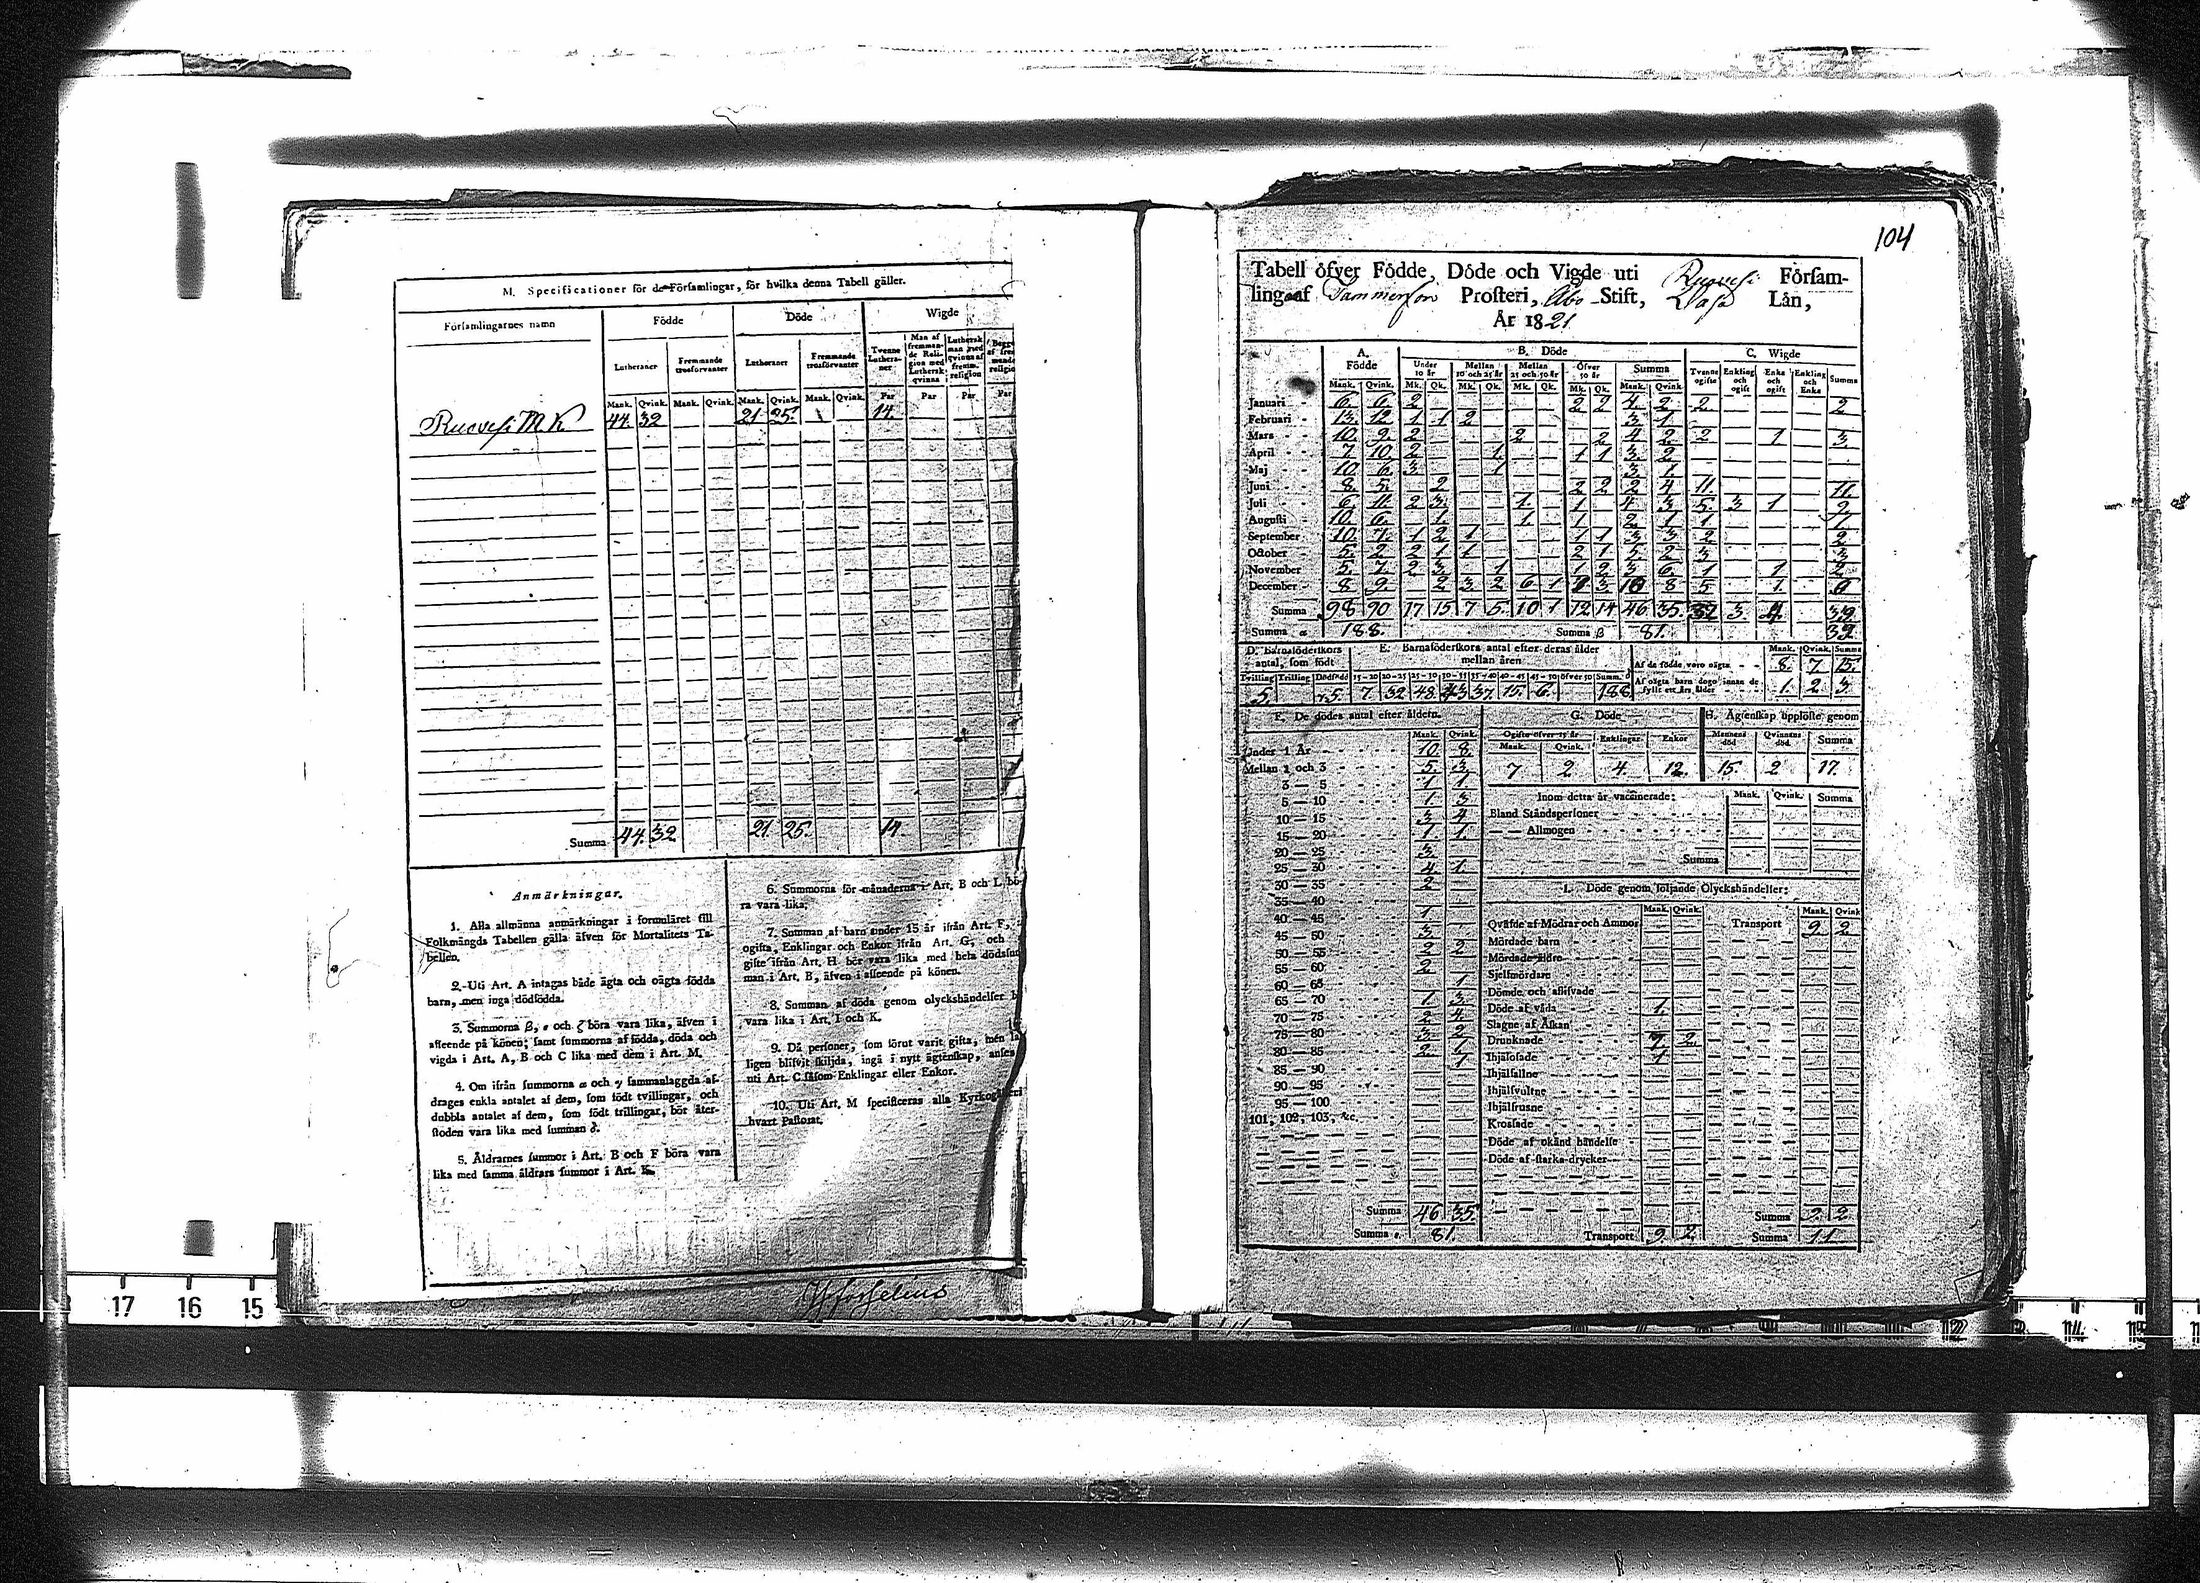 M. Specificationer för de Församlingar, för hvilka denna Tabell gäller.
Församlingarnes namn Födde Döde Wigde
Lutheraner Fremmande trosförvanter Lutheraner Fremmande trosförvanter Tvenne Lutheraner Man af fremmande Religion med Luthersk qvinna Luthersk man med qvinna af fremm. religion
Mank. Qvink. Mank. Qvink. Mank. Qvink. Mank. Qvink. Par Par Par Par
Ruovesi M K. 44. 32 21 25. 14.
Summa 44. 32 21 25. 14
Anmärkningar.
1. Alla allmänna anmärkningar i formuläret till
Folkmängds Tabellen gälla äfven för Mortalitets Ta-
bellen.
2. Uti Art. A intagas både ägta och oägta födda
barn, men inga dödfödda.
3. Summorna β, ε och ζ böra vara lika, äfven i
afseende på könen; samt summorna af födda, döda och
vigda i Art. A, B och C lika med dem i Art. M.
4. Om ifrån summorna α och γ sammanlaggda af-
drages enkla antalet af dem, som födt tvillingar, och
dubbla antalet af dem, som födt trillingar, bör åter-
stoden vara lika med summan δ.
5. Åldrarnes summor i Art. B och F böra vara
lika med samma åldrars summor i Art. K.
6. Summorna för månaderna i Art. B och L bö-
ra vara lika.
7. Summan af barn under 15 år ifrån Art. F,
ogifta, Enklingar och Enkor ifrån Art. G, och
gifte ifrån Art. H bör vara lika med hela dödssum
man i Art. B, äfven i afseende på könen.
8. Summan af döda genom olyckshändelser b
vara lika i Art. I och K.
9. Då personer, som förut varit gifta, men la
ligen blifvit skiljda, ingå i nytt ägtenskap, anses
uti Art. C såsom Enklingar eller Enkor.
10. Uti Art. M specificeras alla
hvart Pastorat.
104
Tabell öfver Födde, Döde och Vigde uti Ruovesi Församling af Tammerfors Prosteri, Åbo Stift, Wasa Län,
År 1821
A. Födde B. Döde C. Wigde
Under 10 år Mellan 10 och 25 år Mellan 25 och 50 år Öfver 50 år Summa Tvenne ogifte Enkling och ogift Enka och ogift Enkling och Enka Summa
Mank. Qvink. Mk. Qk. Mk. Qk. Mk. Qk. Mk. Qk. Mank. Qvink.
Januari 6. 6. 2 2 2 4. 2 2. 2
Februari 13. 12. 1 1 2 3 1
Mars 10. 9. 2 2 2 4 2 2 1 3
April 7. 10. 2 1 1 1 3. 2
Maj 10. 6. 3 1 3 1
Juni 8. 5. 2 2 2 2 4 11 11.
Juli 6. 11. 2 3. 1. 1 4 3 5. 3 1 9
Augusti 10. 6. 1. 1 1 2 1 1 1
September 10. 7. 1 2 1 1 1 3 3 2 2
October 5. 2 2 1 1 2 1 5. 2 3 3
November 5. 7. 2 3. 1 1 2 3 6. 1 1 2
December 8 9. 2 3. 2 6 1 1 3. 10 8 5 1. 6
Summa 98 90 17 15 7 5. 10 1 12 14 46 35. 32 3. 4. 39
Summa α 188. Summa β 81. 39
D. Barnaföderskors antal, som födt E. Barnaföderskors antal efter deras ålder mellan åren
Tvilling Trilling Dödfödd 15-20 20-25 25-30 30-35 35-40 40-45 45-50 öfver 50 Summ. δ
5. 5. 7 32 48. 43 37. 15. 6. 188
Mank. Qvink. Summa
Af de födde voro oägta 8. 7 15.
Af oägta barn dogo innan de fyllt ett års ålder 1. 2 3.
F. De dödes antal efter åldern. G. Döde H. Ägtenskap upplöste genom
Mank. Qvink. Ogifte öfver 15 år Mank. Qvink. Enklingar Enkor Mannens död Qvinnans död. Summa
7 2 4. 12. 15. 2 17.
Under 1 År 10 8
Mellan 1 och 3 5. 3
3 — 5 1 1
5 — 10 1. 3
10 — 15 3 4
15 — 20 1 1.
20 — 25 3
25 — 30 4 1.
30 — 35 2
35 — 40
40 — 45 1
45 — 50 3
50 — 55 2 2
55 — 60 2
60 — 65 1
65 — 70 1 3
70 — 75 2 4
75 — 80 3 2
80 — 85 2. 1
85 — 90 1
90 — 95
95 — 100
101, 102, 103, &c.
Summa 46 35.
Summa ε. 81.
Inom detta år vaccinerade: Mank. Qvink. Summa
Bland Ståndspersoner
— — Allmogen
Summa
I. Döde genom följande Olyckshändelser:
Mank. Qvink. Mank. Qvink
Qväfde af Mödrar och Ammor Transport 9. 2
Mördade barn
Mördade äldre
Sjelfmördare
Dömde och aflifvade
Döde af våda 1.
Slagne af Åskan
Drunknade 7. 2.
Ihjälofade 1
Ihjälfallne
Ihjälfvultne
Ihjälfrusne
Krossade
Döde af okänd händelse
Döde af starka drycker
Summa 9. 2
Transport 9. 2 Summa 11
17 16 15
12